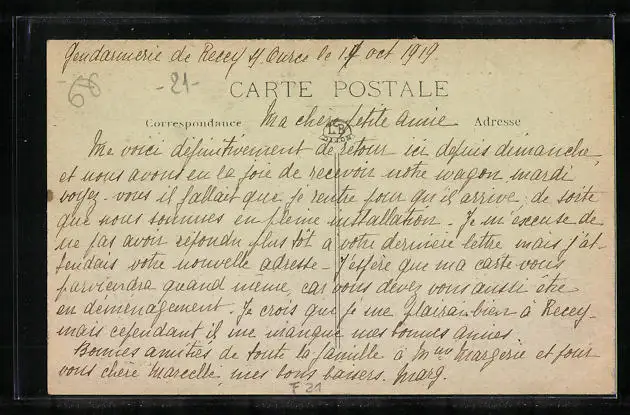 Gendarmerie de Recey s/ Ource le 17 oct 1919
68 -21-
CARTE POSTALE
Correspondance Ma chère petite amie Adresse
LB
DIJON
Me voici définitivement de retour ici depuis dimanche,
et nous avons eu la joie de recevoir notre wagon mardi
voyez-vous il fallait que je rentre pour qu'il arrive; de sorte
que nous sommes en pleine installation. Je m'excuse de
ne pas avoir répondu plus tôt à votre dernière lettre mais j'at-
tendais votre nouvelle adresse. J'espère que ma carte vous
parviendra quand même, car vous devez vous aussi être
en déménagement. Je crois que je me plairai bien à Recey-
mais cependant il me manque mes bonnes amies.
Bonnes amitiés de toute la famille à Mme Margerie et pour
vous chère Marcelle, mes bons baisers. Marg.
F 21